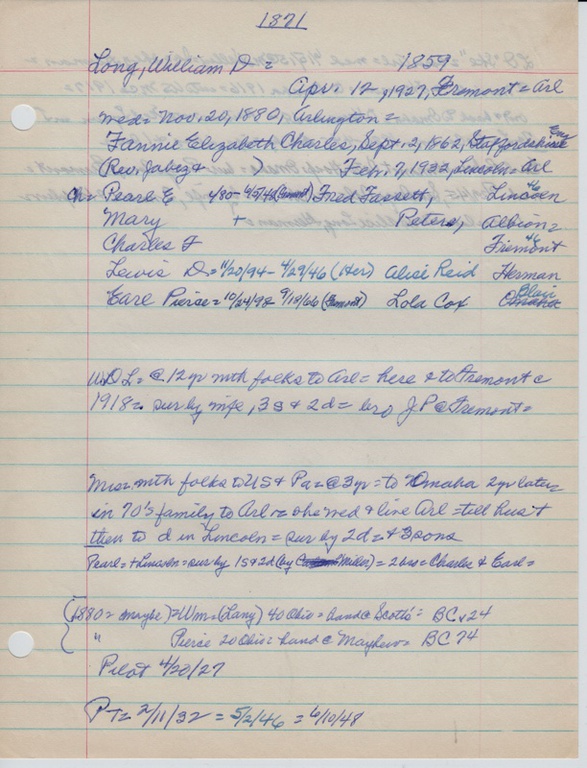 1871
Long, William D = 1859
Apr. 12, 1927, Fremont = Arl
med = Nov. 20, 1880, Arlington =
Fannie Elizabeth Charles, Sept. 2, 1862, Staffordshire Eng
(Rev. Jabez & ) Feb. 7, 1932, Lincoln = Arl
Ch = Pearl E (Fremont) Fred Fassett, Lincoln 46
Mary + Peters, Albion =
Charles F Fremont 46
Lewis D = 11/20/94 - 4/29/46 (Her) Alise Reid Herman
Earl Pierce = 10/24/98 9/18/66 (Fremont) Lola Cox Blair
WDL = @ 12 yr with folks to Arl = here & to Fremont c
1918 = sur by wife, 3 s & 2 d = bro J P @ Fremont =
Mrs = with folks to US & Pa = @ 3 yr = to Omaha 2 yr later
in 70's family to Arl = she med & live Arl = till hus't
then to d in Lincoln = sur by 2 d = & 3 sons
Pearl = + Lincoln = sur by 1 s & 2 d (by Miller) = 2 bros = Charles & Earl =
(1880 = maybe) = Wm = (Lany) 40 Ohio = hand c Scotts = BC x 24
" Pierce 20 Ohio = hand c Mayhew = BC 74
Pilot 4/20/27
PT = 2/11/32 = 5/2/46 = 6/10/48